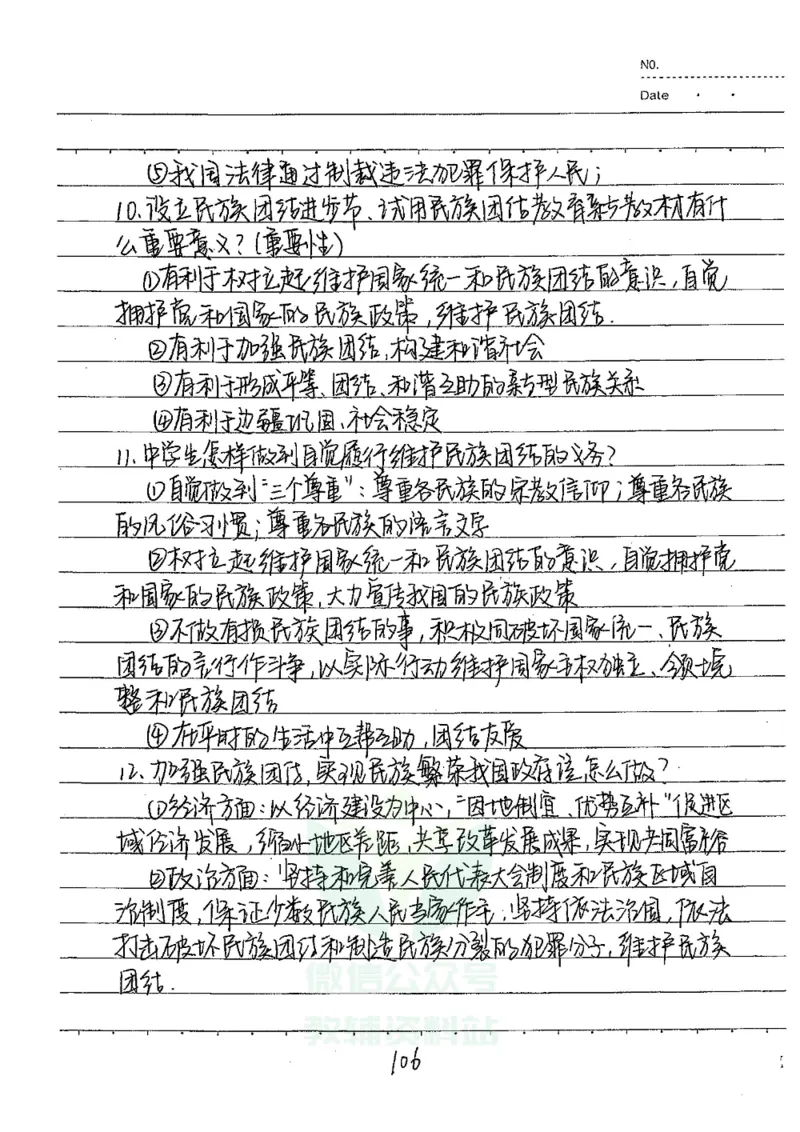 NO.
Date
⑤我国法律通过制裁违法犯罪保护人民;
10.设立民族团结进步节、试用民族团结教育系列教材有什
么重要意义?(重要性)
①有利于树立起维护国家统一和民族团结的意识,自觉
拥护党和国家的民族政策,维护民族团结.
②有利于加强民族团结,构建和谐社会
③有利于形成平等、团结、和谐互助的新型民族关系
④有利于边疆巩固、社会稳定
11.中学生怎样做到自觉履行维护民族团结的义务?
①自觉做到"三个尊重":尊重各民族的宗教信仰;尊重各民族
的风俗习惯;尊重各民族的语言文字
②树立起维护国家统一和民族团结的意识,自觉拥护党
和国家的民族政策,大力宣传我国的民族政策
③不做有损民族团结的事,积极同破坏国家统一、民族
团结的言行作斗争,以实际行动维护国家主权独立、领土完
整和民族团结
④在平时的生活中互帮互助,团结友爱
12.加强民族团结,实现民族繁荣我国政府该怎么做?
①经济方面:以经济建设为中心,"因地制宜、优势互补"促进区
域经济发展,缩小地区差距,共享改革发展成果,实现共同富裕
②政治方面:坚持和完善人民代表大会制度和民族区域自
治制度,保证少数民族人民当家作主,坚持依法治国,依法
打击破坏民族团结和制造民族分裂的犯罪分子,维护民族
团结.
微信公众号
教辅资料站
106